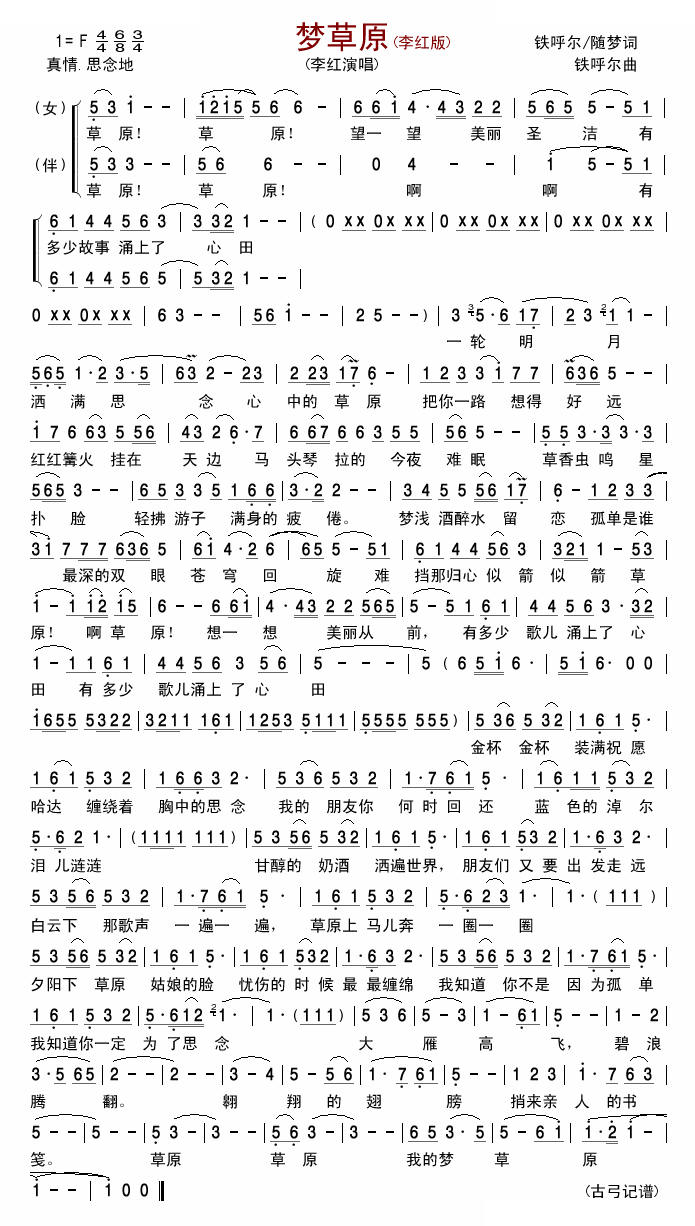 梦草原(李红版)
1= F 4/4 6/8 3/4
铁呼尔/随梦词
真情.思念地
(李红演唱)
铁呼尔曲
(女) 5 3 1 - - | 1 2 1 5 5 6 6 - | 6 6 1 4 · 4 3 2 2 | 5 6 5 5 - 5 1
草 原! 草 原! 望一 望 美丽 圣 洁 有
(伴) 5 3 3 - - | 5 6 6 - - | 0 4 - - | 1 5 - 5 1
草 原! 草 原! 啊 啊 有
6 1 4 4 5 6 3 | 3 3 2 1 - - | ( 0 x x 0 x x | 0 x x 0 x x | 0 x x 0 x x |
多少故事 涌上了 心 田
6 1 4 4 5 6 5 | 5 3 2 1 - - |
0 x x 0 x x | 6 3 - - | 5 6 1 - - | 2 5 - - ) | 3 5 · 6 1 7 | 2 3 1 1 - |
一 轮 明 月
5 6 5 1 · 2 3 · 5 | 6 3 2 - 2 3 | 2 2 3 1 7 6 - | 1 2 3 3 1 7 7 | 6 3 6 5 - - |
洒 满 思 念 心 中的 草 原 把你一路 想得 好 远
1 7 6 6 3 5 5 6 | 4 3 2 6 · 7 | 6 6 7 6 6 3 5 5 | 5 6 5 - - | 5 5 3 · 3 3 · 3 |
红红篝火 挂在 天 边 马 头琴 拉的 今夜 难 眠 草香虫 鸣 星
5 6 5 3 - - | 6 5 3 3 5 1 6 6 | 3 · 2 2 - - | 3 4 5 5 5 6 1 7 | 6 - 1 2 3 3 |
扑 脸 轻拂 游子 满身的 疲 倦。 梦浅 酒醉水 留 恋 孤单是谁
3 1 7 7 7 6 3 6 5 | 6 1 4 · 2 6 | 6 5 5 - 5 1 | 6 1 4 4 5 6 3 | 3 2 1 1 - 5 3 |
最深的双 眼 苍 穹 回 旋 难 挡那归心 似 箭 似 箭 草
1 - 1 1 2 1 5 | 6 - - 6 6 1 | 4 · 4 3 2 2 5 6 5 | 5 - 5 1 6 1 | 4 4 5 6 3 · 3 2 |
原! 啊 草 原! 想一 想 美丽从 前, 有多少 歌儿 涌上了 心
1 - 1 1 6 1 | 4 4 5 6 3 5 6 | 5 - - - | 5 ( 6 5 1 6 · | 5 1 6 · 0 0 |
田 有 多少 歌儿涌上 了 心 田
1 6 5 5 5 3 2 2 | 3 2 1 1 1 6 1 | 1 2 5 3 5 1 1 1 | 5 5 5 5 5 5 5 ) | 5 3 6 5 3 2 | 1 6 1 5 · |
金杯 金杯 装满祝 愿
1 6 1 5 3 2 | 1 6 6 3 2 · | 5 3 6 5 3 2 | 1 · 7 6 1 5 · | 1 6 1 1 5 5 3 |
哈达 缠绕着 胸中的思 念 我的 朋友你 何 时 回 还 蓝 色的 淖 尔
5 · 6 2 1 · | ( 1 1 1 1 1 1 1 ) | 5 3 5 6 5 3 2 | 1 6 1 5 · | 1 6 1 5 3 2 | 1 · 6 3 2 · |
泪 儿涟涟 甘醇的 奶酒 洒遍世界, 朋友们 又 要 出 发走 远
5 3 5 6 5 3 2 | 1 · 7 6 1 5 · | 1 6 1 5 3 2 | 5 · 6 2 3 1 · | 1 · ( 1 1 1 ) |
白云下 那歌声 一 遍一 遍, 草原上 马儿奔 一 圈一 圈
5 3 5 6 5 3 2 | 1 6 1 5 · | 1 6 1 5 3 2 | 1 · 6 3 2 · | 5 3 5 6 5 3 2 | 1 · 7 6 1 5 · |
夕阳下 草原 姑娘的脸 忧伤的 时 候 最 最缠绵 我知道 你不是 因 为孤 单
1 6 1 5 3 2 | 5 · 6 1 2 2 1 · | 1 · ( 1 1 1 ) | 5 3 6 | 5 - 3 | 1 - 6 1 | 5 - - | 1 - 2 |
我知道你一定 为 了思 念 大 雁 高 飞, 碧 浪
3 · 5 6 5 | 2 - - | 2 - - | 3 - 4 | 5 - 5 6 | 1 · 7 6 1 | 5 - - | 1 2 3 | 1 · 7 6 3 |
腾 翻。 翱 翔 的 翅 膀 捎来亲 人 的书
5 - - | 5 - - | 3 - 3 | 3 - - | 5 · 5 6 | 3 - - | 6 5 3 5 · | 5 - 6 1 | 1 · 2 1 - |
笺。 草原 草 原 我的梦 草 原
1 - - | 1 0 0 ‖
(古弓记谱)